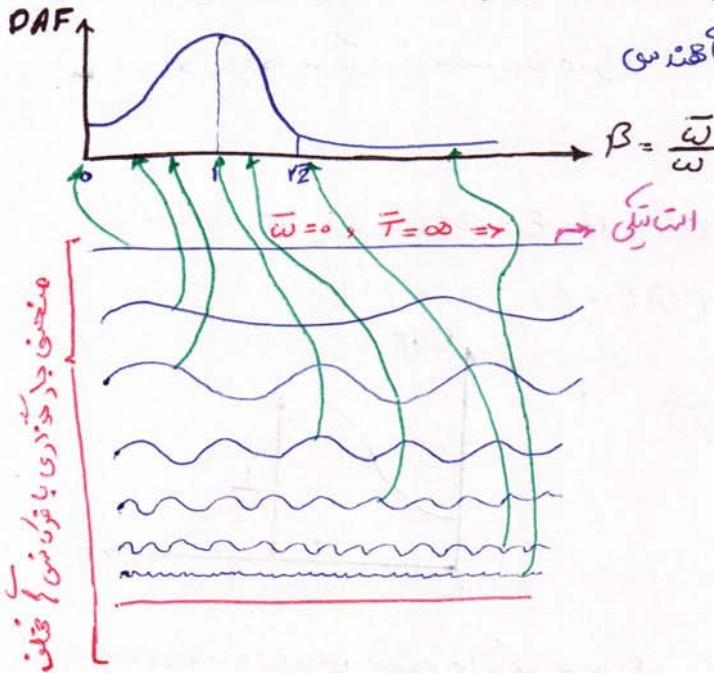 DAF
مهندسی
β = ω̄/ω
0 1 √2
ω̄ = 0 , T̄ = ∞ ⇒ استاتیکی
منحنی بارگذاری با فرکانس های مختلف